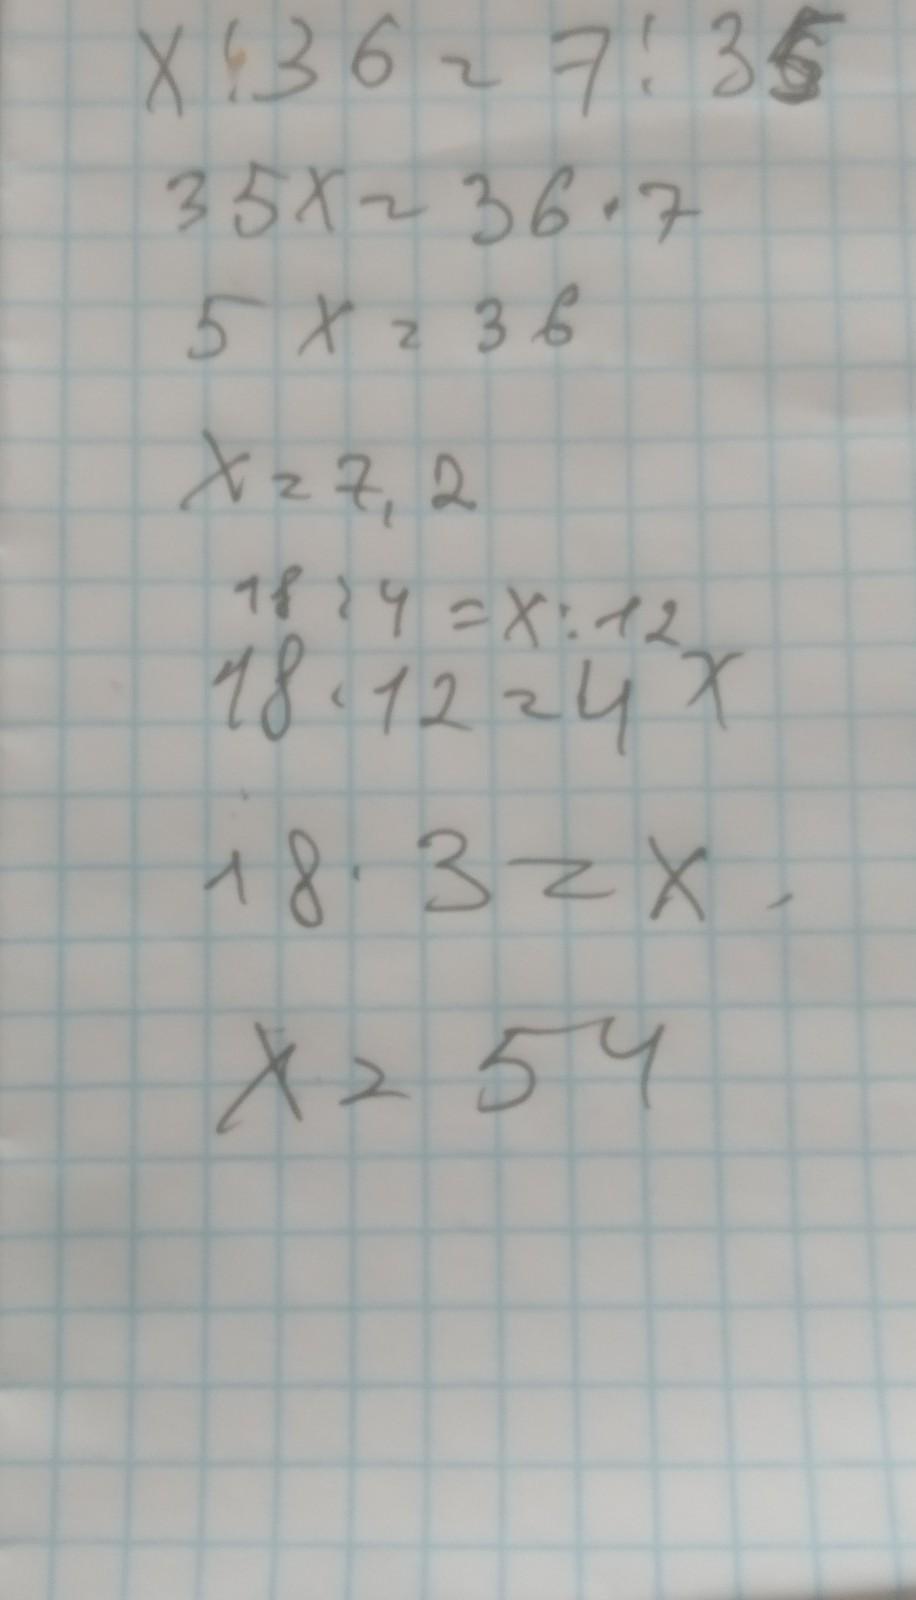 x:36=7:35
35x=36·7
5x=36
x=7,2
18:4=x:12
18·12=4x
18·3=x
x=54